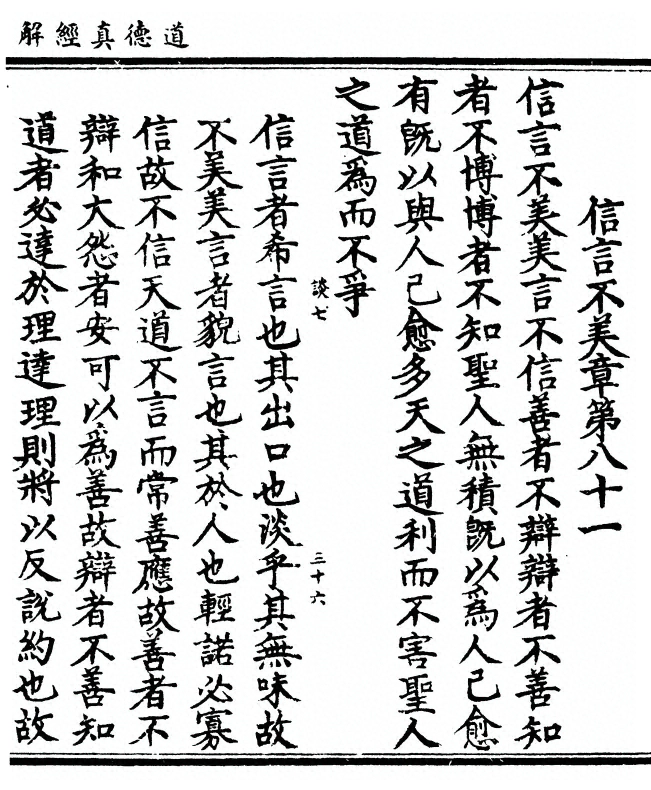 道德真經解
信言不美章第八十一
信言不美美言不信善者不辯辯者不善知
者不博博者不知聖人無積既以爲人己愈
有既以與人己愈多天之道利而不害聖人
之道爲而不爭
談七
三十六
信言者希言也其出口也淡乎其無味故
不美美言者貌言也其於人也輕諾必寡
信故不信天道不言而常善應故善者不
辯和大怨者安可以爲善故辯者不善知
道者必達於理達理則將以反說約也故